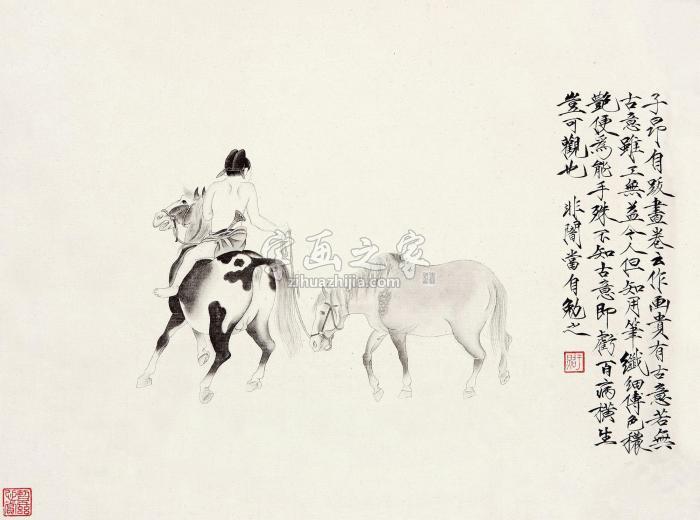 子昂自跋畫卷云作画貴有古意若無
古意雖工無益今人但知用筆纖細傅色穠
艶便為能手殊不知古意即虧百病橫生
豈可觀也 非闇當自勉之
字画之家
zihuazhijia.com